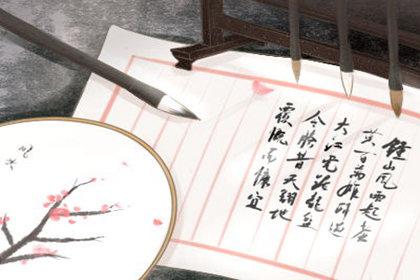 钟山风雨起苍
黄百万雄师过
大江虎踞龙盘
今胜昔天翻地
覆慨而慷宜